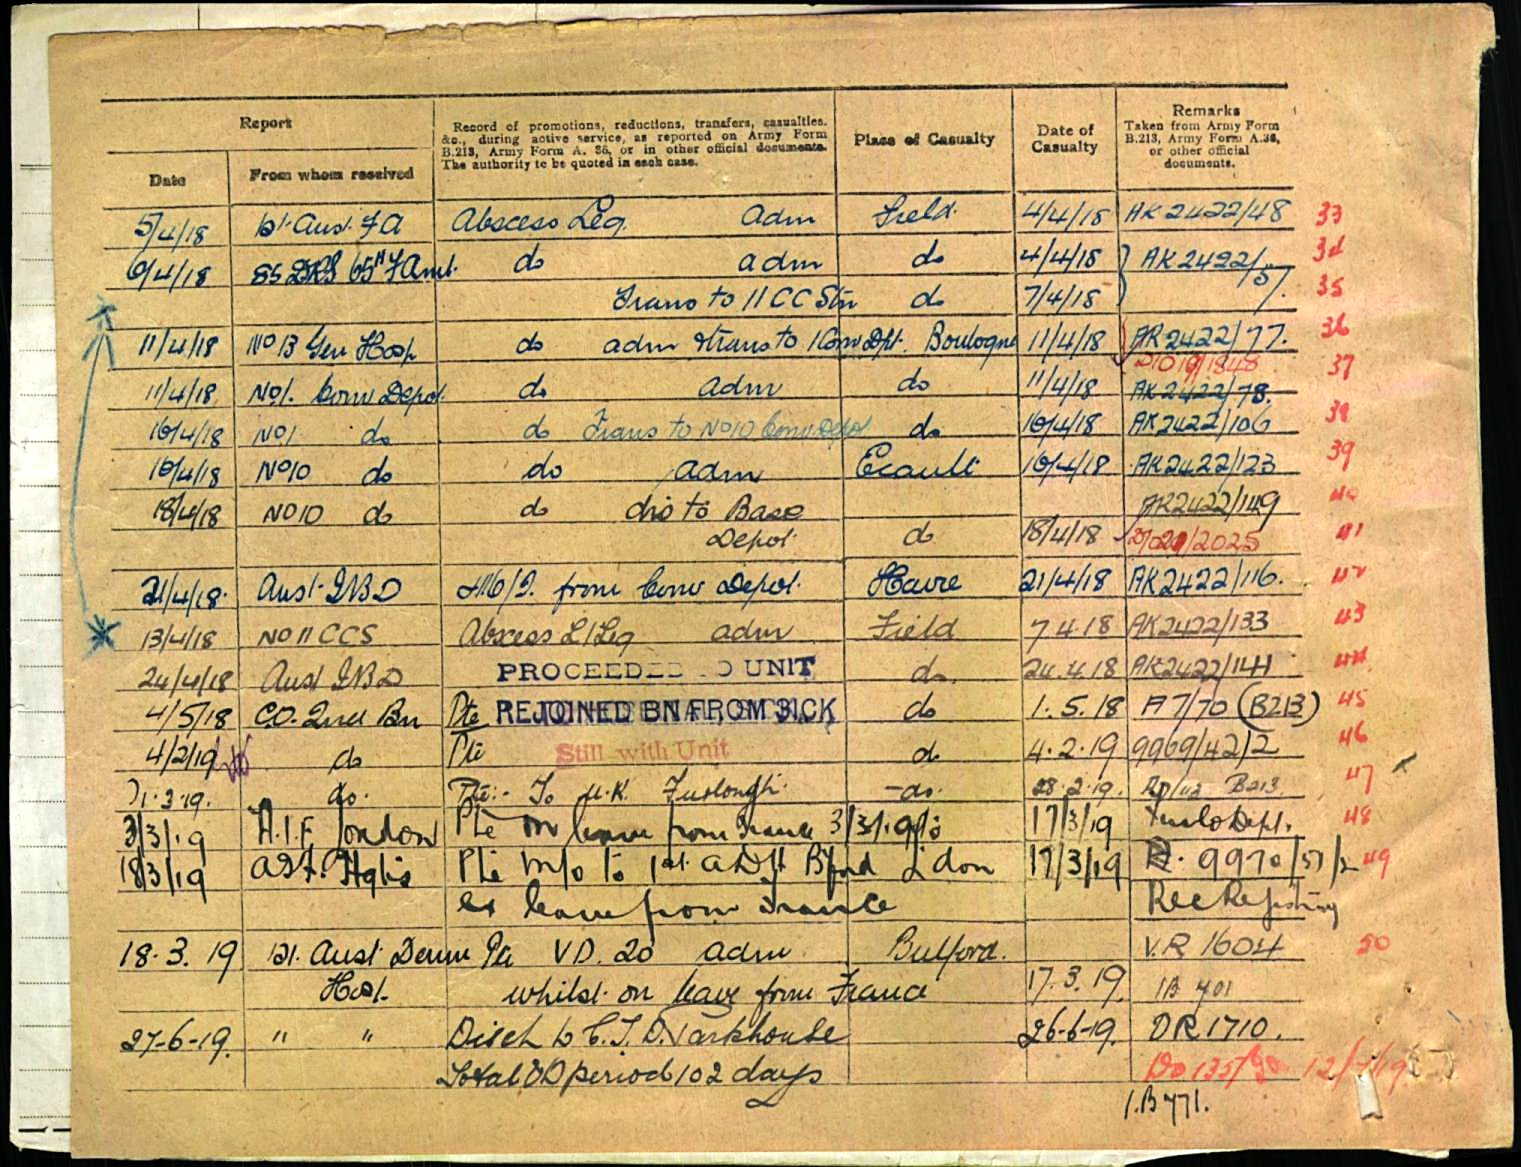 Report
Record of promotions, reductions, transfers, casualties,
&c., during active service, as reported on Army Form
B.213, Army Form A. 36, or in other official documents.
The authority to be quoted in each case.
Place of Casualty
Date of
Casualty
Remarks
Taken from Army Form
B.213, Army Form A.36,
or other official
documents.
Date From whom received
5/4/18 1st Aust. F A Abscess Leg. adm Field. 4/4/18 AK 2422/48 33
6/4/18 55 DRS 65" F Amb. do adm do 4/4/18 AK 2422/57. 34
Trans to 11 CC Stn do 7/4/18 35
11/4/18 No 13 Gen Hosp do adm & trans to 1 Conv Dpt. Boulogne 11/4/18 AK 2422/77. 36
11/4/18 No 1. Conv Depot. do adm do 11/4/18 AK 2422/78. 37
16/4/18 No 1 do do Trans to No 10 Conv Depot do 16/4/18 AK 2422/106 38
16/4/18 No 10 do do adm Ecault 16/4/18 AK 2422/123 39
18/4/18 No 10 do do dis to Base AK 2422/149 40
Depot. do 18/4/18 2025 41
21/4/18. Aust I B D from Conv Depot. Havre 21/4/18 AK 2422/116. 42
13/4/18 No 11 CCS Abscess L/Leg adm Field 7 4 18 AK 2422/133 43
24/4/18 Aust I B D PROCEEDED TO UNIT do. 24.4.18 AK 2422/141 44
4/5/18 C.O. 2nd Bn Pte REJOINED BN FROM SICK do 1. 5. 18 A7/70 (B213) 45
4/2/19 do Pte Still with Unit do 4. 2. 19 9969/42/2 46
1.3.19. do. Pte:- To U.K. Furlough. -do. 28.2.19. B213 47
3/3/19 A.I.F London Pte on leave from France 3/3/19 17/3/19 Furlo Dept. 48
18/3/19 A.I.F. Hqrs Pte m/o to 1st A D H Bford L'don 17/3/19 R. 9970/57/2 49
ex leave from France Rec Registry
18. 3. 19 1st. Aust Derm Pte V D. 20 adm Bulford. V.R 1604 50
Hosp. whilst on leave from France 17. 3. 19. IB 701
27-6-19. " " Disch to C. T. D. Parkhouse 26-6-19. DR 1710.
Total VD period 102 days
1.B 771.